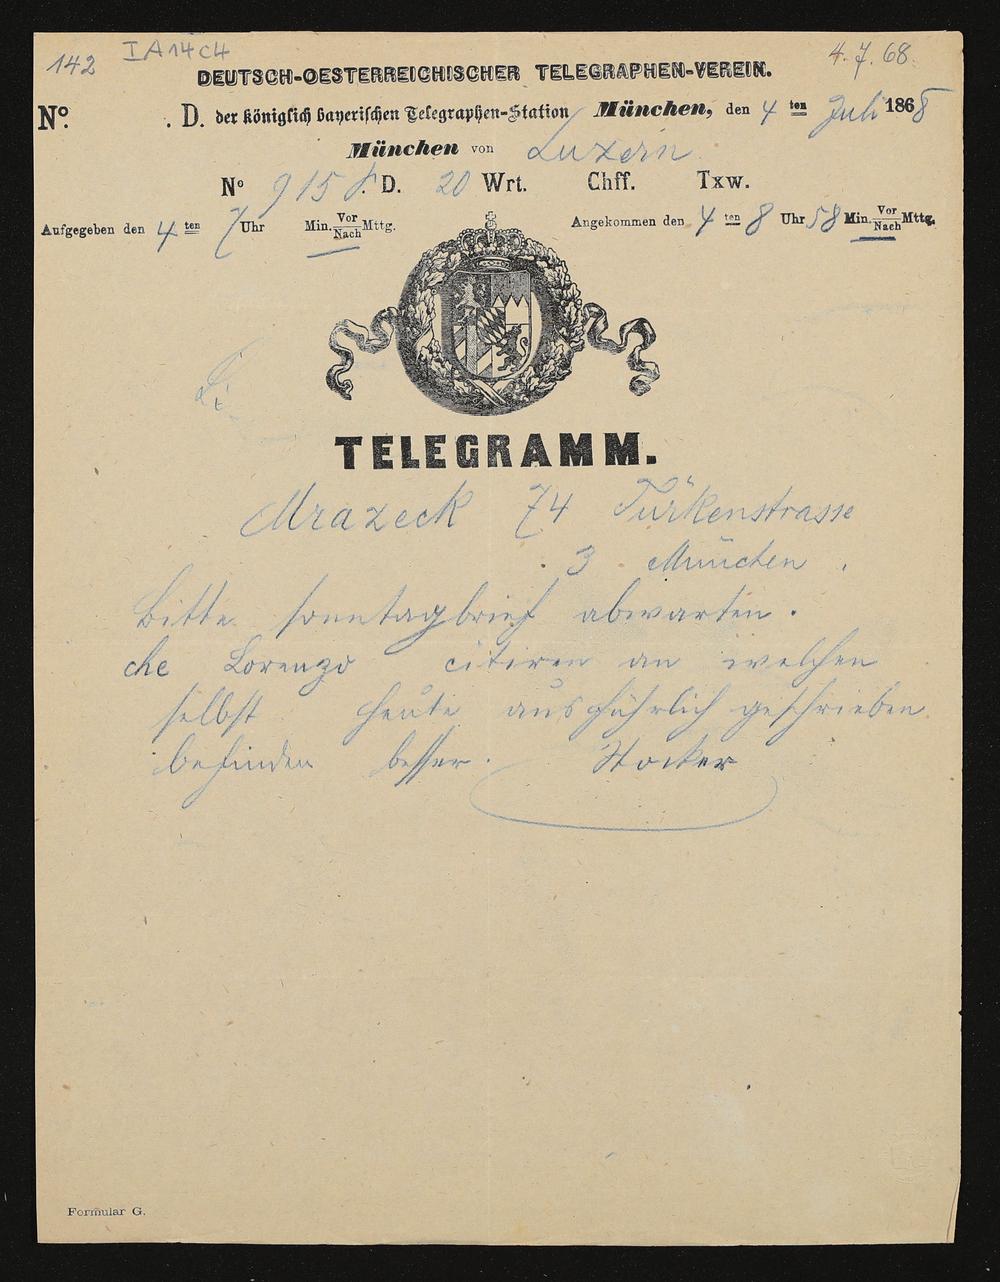 142 IA14c4 4.7.68.
DEUTSCH-OESTERREICHISCHER TELEGRAPHEN-VEREIN.
No. . D. der königlich bayerischen Telegraphen-Station München, den 4 ten Juli 1868
München von Luzern
No 9158. D. 20 Wrt. Chff. Txw.
Aufgegeben den 4 ten 7 Uhr Min. Vor/Nach Mttg. Angekommen den 4 ten 8 Uhr 58 Min. Vor/Nach Mttg.
TELEGRAMM.
Mrazeck 74 Türkenstrasse
3 München.
Bitte sonntagbrief abwarten.
che Lorenzo citiren an welchen
selbst heute ausführlich geschrieben
befinden besser. Stocker
Formular G.